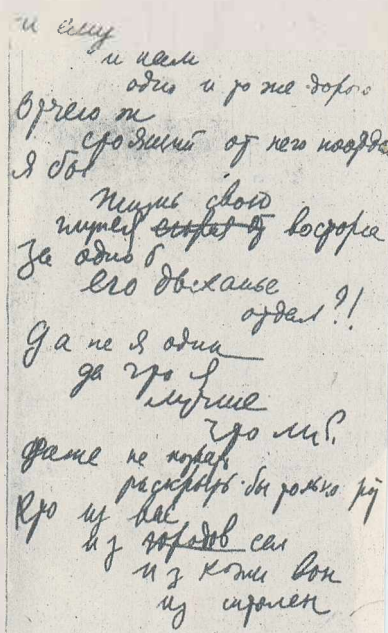 и ему
и нам
одно и то же дорого
Отчего ж
стоящий от него поода
я бы
жизнь свою
глупея от восторга
за одно б
его дыханье
отдал?!
Да не я один
да что я
лучше
что ли?
Даже не позвав
раскрыть бы только ро
Кто из вас
из городов сел
из кожи вон
из штолен